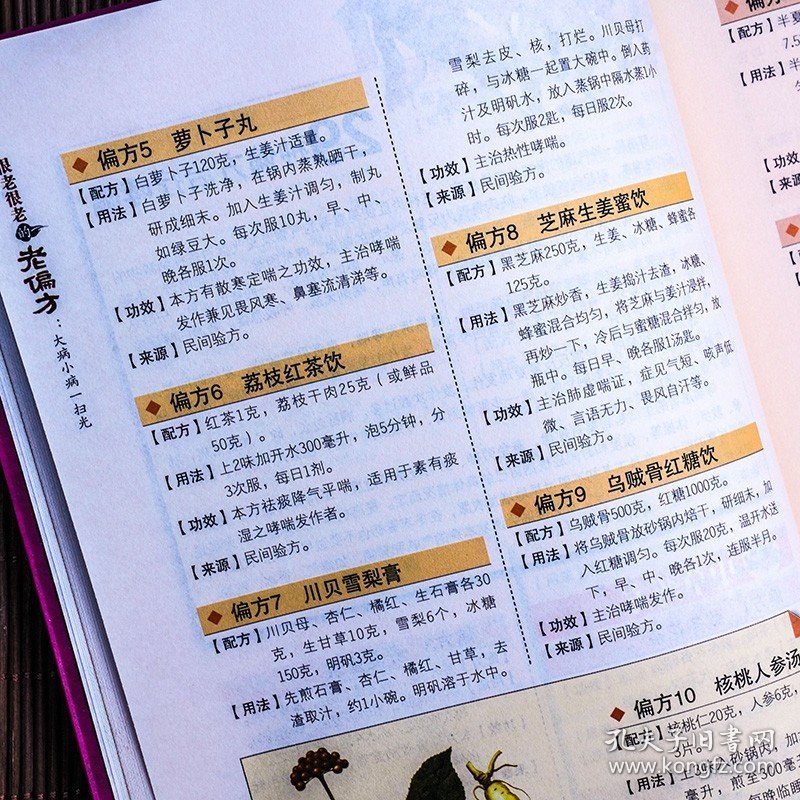 很老很老
的
老偏方
：大病小病一扫光
偏方5 萝卜子丸
【配方】白萝卜子120克，生姜汁适量。
【用法】白萝卜子洗净，在锅内蒸熟晒干，
研成细末。加入生姜汁调匀，制丸
如绿豆大。每次服10丸，早、中、
晚各服1次。
【功效】本方有散寒定喘之功效，主治哮喘
发作兼见畏风寒、鼻塞流清涕等。
【来源】民间验方。
偏方6 荔枝红茶饮
【配方】红茶1克，荔枝干肉25克（或鲜品
50克）。
【用法】上2味加开水300毫升，泡5分钟，分
3次服，每日1剂。
【功效】本方祛痰降气平喘，适用于素有痰
湿之哮喘发作者。
【来源】民间验方。
偏方7 川贝雪梨膏
【配方】川贝母、杏仁、橘红、生石膏各30
克，生甘草10克，雪梨6个，冰糖
150克，明矾3克。
【用法】先煎石膏、杏仁、橘红、甘草，去
渣取汁，约1小碗。明矾溶于水中。
雪梨去皮、核，打烂。川贝母打
碎，与冰糖一起置大碗中。倒入药
汁及明矾水，放入蒸锅中隔水蒸1小
时。每次服2匙，每日服2次。
【功效】主治热性哮喘。
【来源】民间验方。
偏方8 芝麻生姜蜜饮
【配方】黑芝麻250克，生姜、冰糖、蜂蜜各
125克。
【用法】黑芝麻炒香，生姜捣汁去渣，冰糖、
蜂蜜混合均匀，将芝麻与姜汁浸拌，
再炒一下，冷后与蜜糖混合拌匀，放
瓶中。每日早、晚各服1汤匙。
【功效】主治肺虚喘证，症见气短、咳声低
微、言语无力、畏风自汗等。
【来源】民间验方。
偏方9 乌贼骨红糖饮
【配方】乌贼骨500克，红糖1000克。
【用法】将乌贼骨放砂锅内焙干，研细末，加
入红糖调匀。每次服20克，温开水送
下，早、中、晚各1次，连服半月。
【功效】主治哮喘发作。
【来源】民间验方。
偏方10 核桃人参汤
【配方】核桃仁20克，人参6克，
3片。
【用法】上3味，砂锅内，加
毫升，煎至300毫
每晚临睡
偏方
【配方】半夏
7.5
【用法】半
【功效】
【来源】
孔夫子旧书网
www.kongfz.com